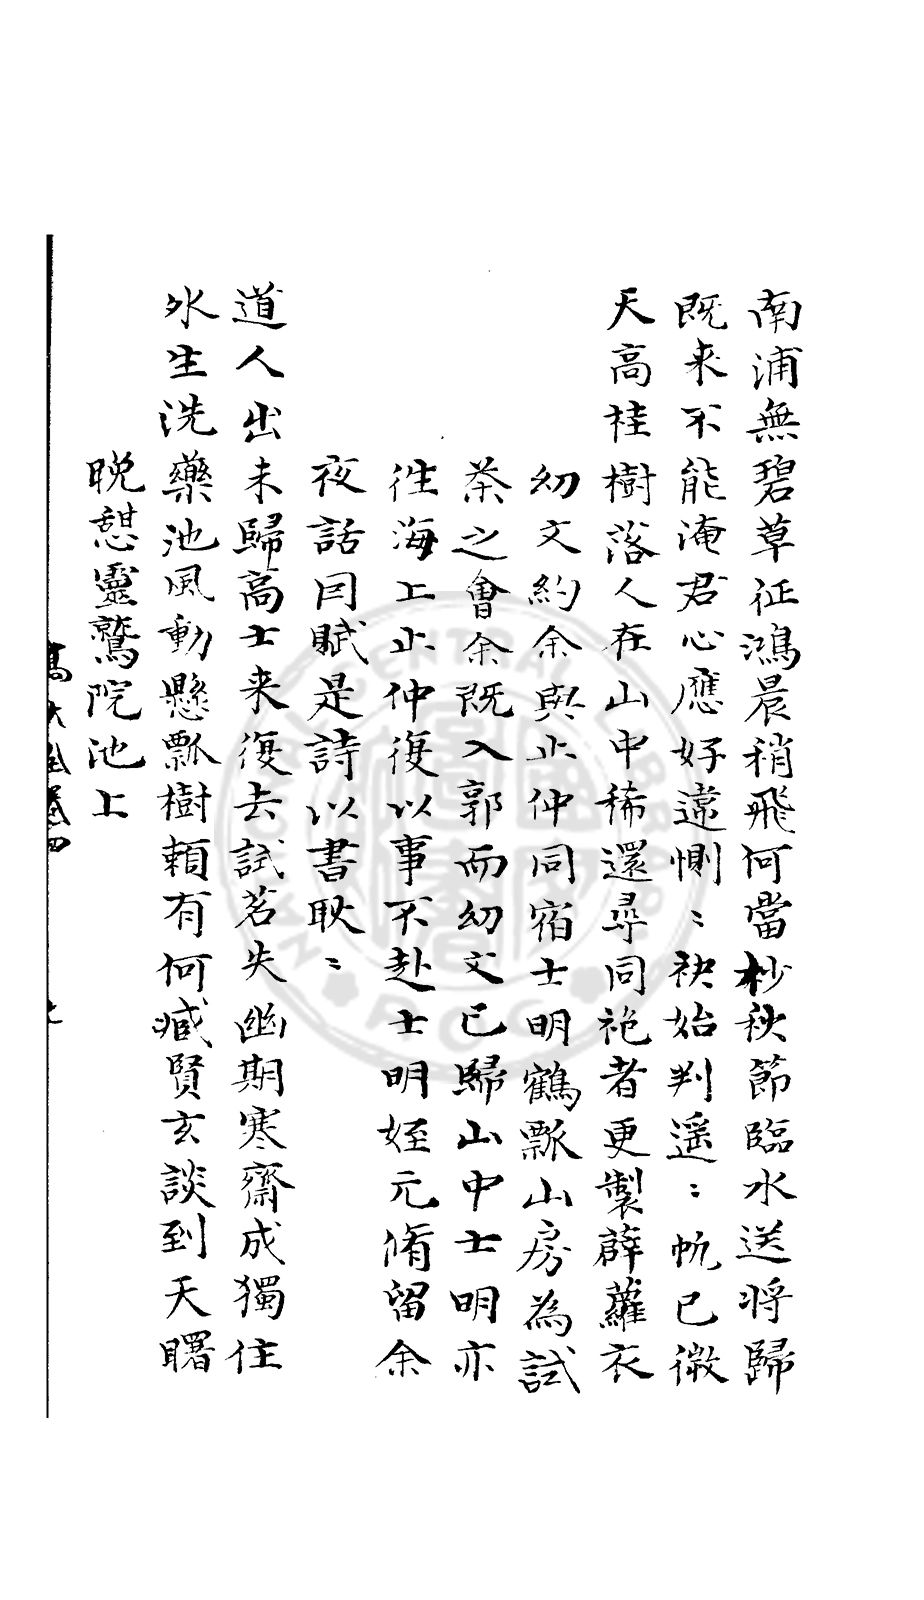 南浦無碧草征鴻晨稍飛何當杪秋節臨水送將歸
既来不能淹君心應好違惻〻袂始判遥〻帆已微
天高桂樹落人在山中稀還尋同袍者更製薜蘿衣
幼文約余與止仲同宿士明鶴瓢山房為試
茶之會余既入郭而幼文已歸山中士明亦
徃海上止仲復以事不赴士明姪元脩留余
夜話因賦是詩以書耿〻
道人出未歸高士来復去試茗失幽期寒齋成獨住
氷生洗藥池風動懸瓢樹賴有何臧賢玄談到天曙
晩憇靈鷲院池上
髙大全卷四
CENTRAL